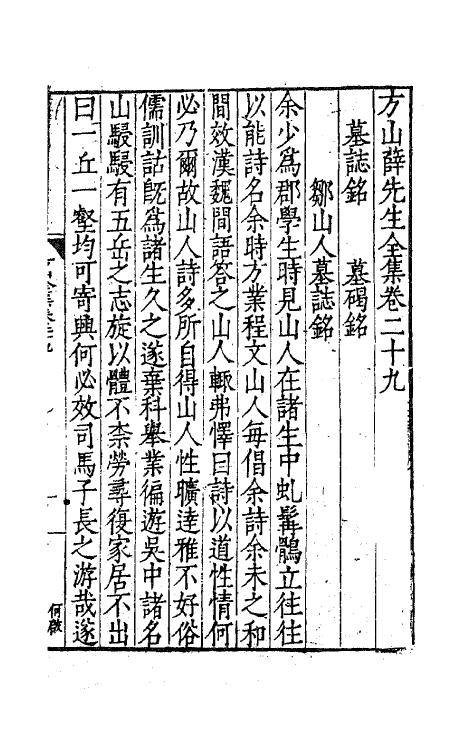 方山薛先生全集卷二十九
墓誌銘 墓碣銘
鄒山人墓誌銘
余少爲郡學生時見山人在諸生中虬髯鶻立往往
以能詩名余時方業程文山人每倡余詩余未之和
間效漢魏間語答之山人輒弗懌曰詩以道性情何
必乃爾故山人詩多所自得山人性曠達雅不好俗
儒訓詁旣爲諸生久之遂棄科舉業徧遊吳中諸名
山駸駸有五岳之志旋以體不柰勞尋復家居不出
曰一丘一壑均可寄興何必效司馬子長之游哉遂
何敬